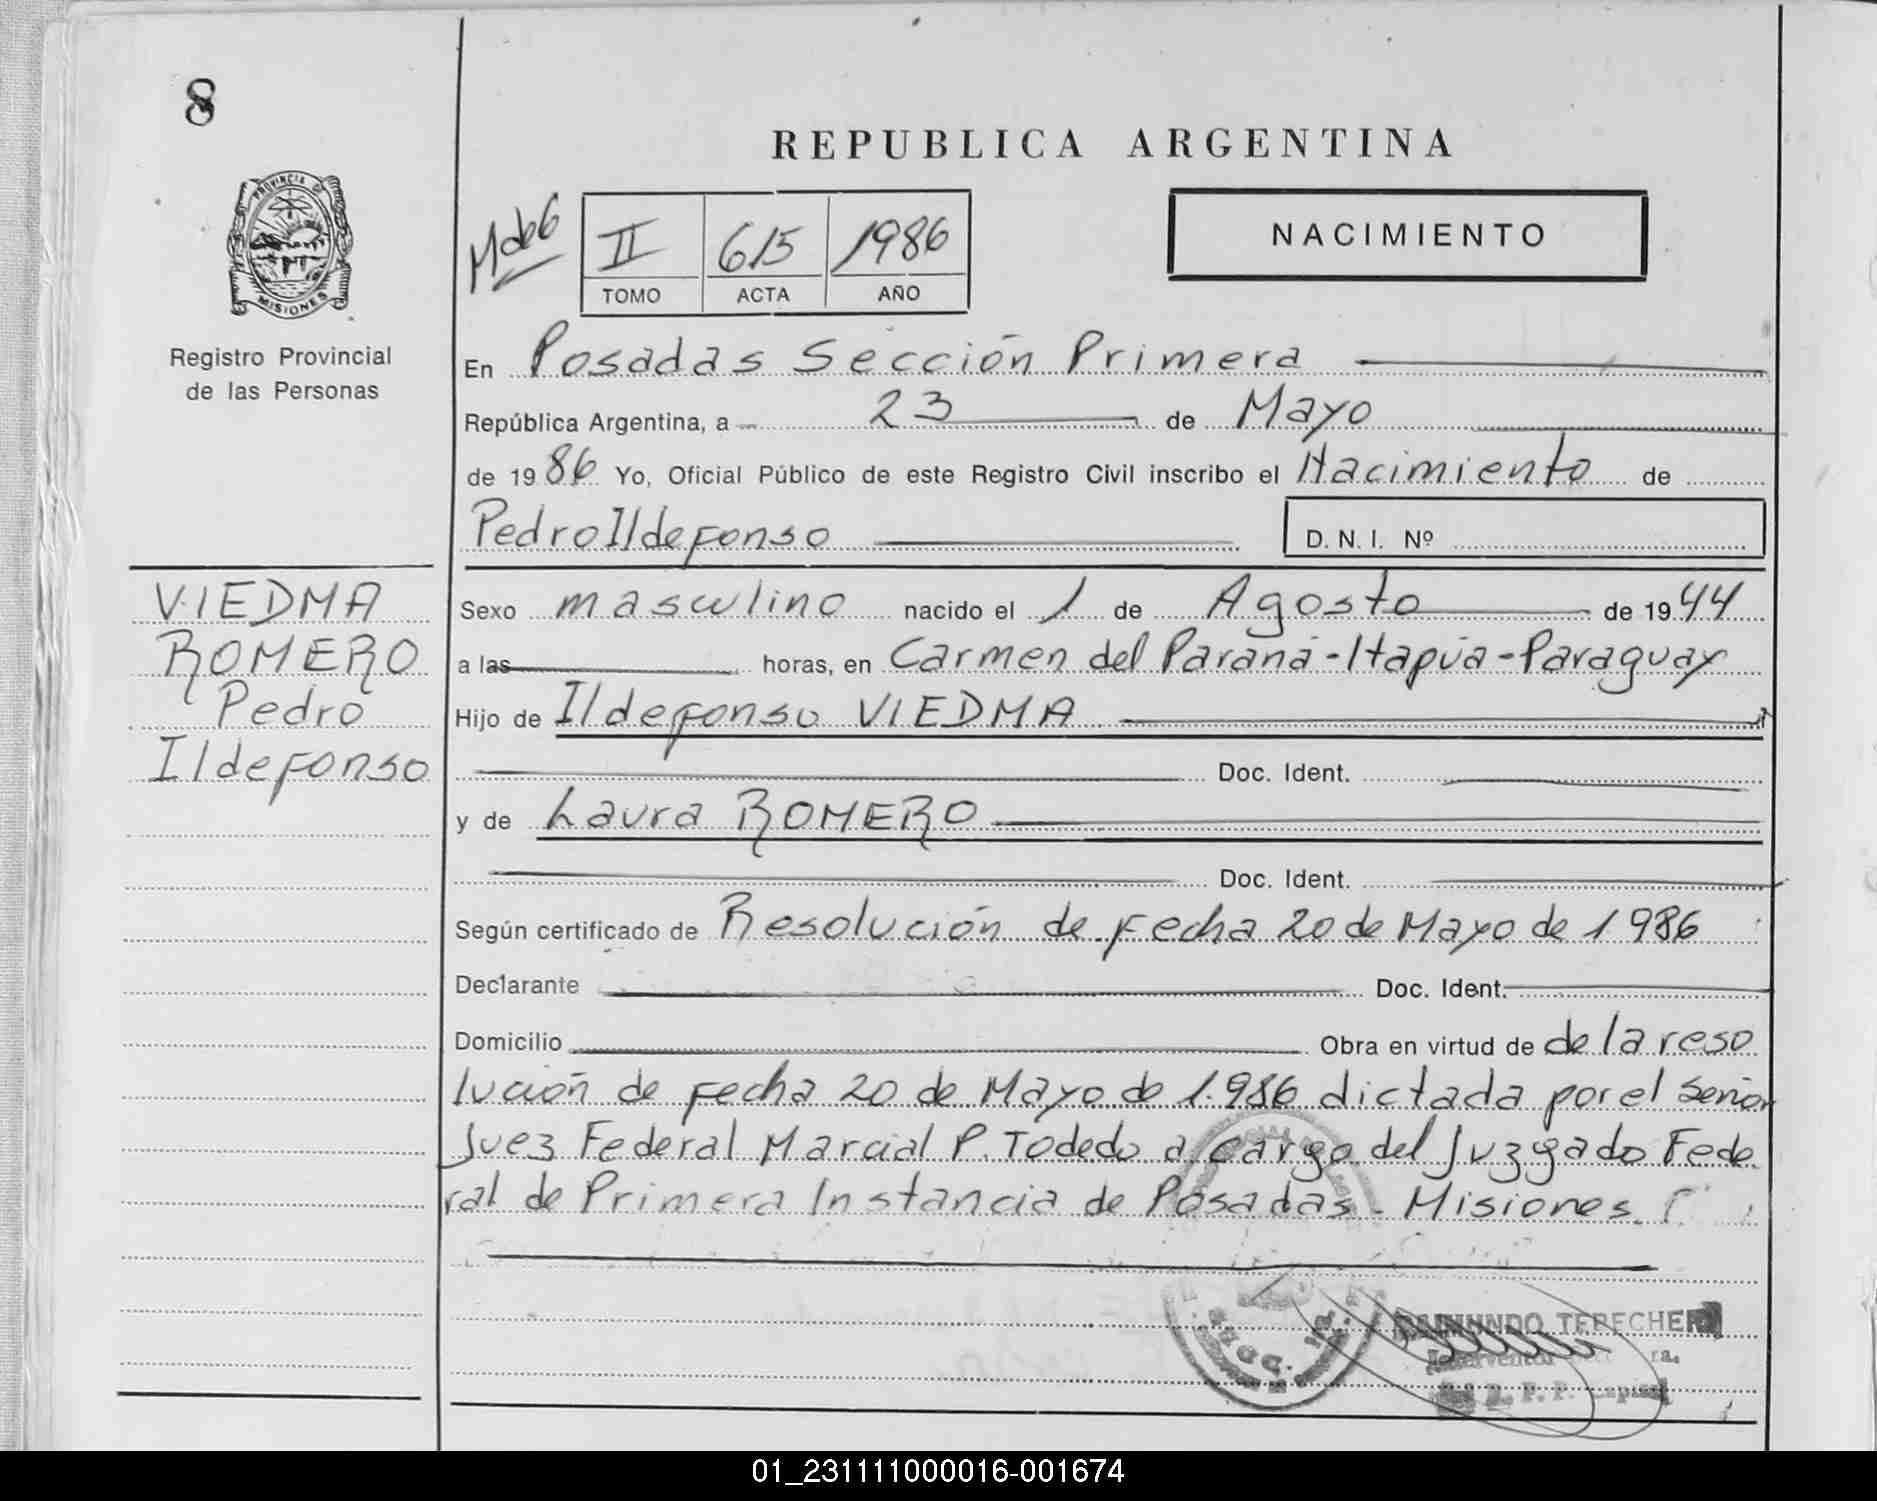 8
PROVINCIA DE
MISIONES
Registro Provincial
de las Personas
VIEDMA
ROMERO
Pedro
Ildefonso
REPUBLICA ARGENTINA
II 615 1986
TOMO ACTA AÑO
NACIMIENTO
En Posadas Sección Primera
República Argentina, a 23 de Mayo
de 1986 Yo, Oficial Público de este Registro Civil inscribo el Nacimiento de
Pedro Ildefonso D.N.I. Nº
Sexo masculino nacido el 1 de Agosto de 1944
a las horas, en Carmen del Paraná - Itapúa - Paraguay
Hijo de Ildefonso VIEDMA
Doc. Ident.
y de Laura ROMERO
Doc. Ident.
Según certificado de Resolución de fecha 20 de Mayo de 1986
Declarante Doc. Ident.
Domicilio Obra en virtud de de la reso
lución de fecha 20 de Mayo de 1.986 dictada por el Señor
Juez Federal Marcial P. Todedo a cargo del Juzgado Fede
ral de Primera Instancia de Posadas - Misiones.
RAIMUNDO TERECHER
01_231111000016-001674